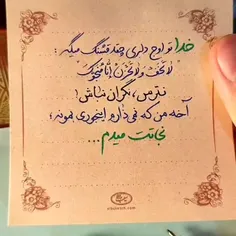 خدا تو اوج دلری چقد قشنگ میگه :
لَا تَخَفْ وَلَا تَحْزَنْ إِنَّا مُنَجُّوكَ
نترس، نگران نباش!
آخه من که نمی ذارم اینجوری بمونه؛
نجاتت میدم...